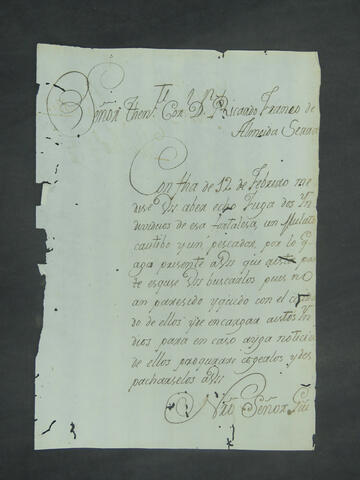 Señor Then.te Cor.l D.n Ricardo Franco de
Almeida Serra
Con fha de 12 de Febrero me
dise Vs aber echo Fuga dos Yn
dividuos de esa fortalesa, un Mulato
cautibo y un pescador, por lo q
aga presente a Vs que
te es que Vs buscarlos pues no
an paresido y quedo con el cuida
do de ellos y de encargar a estos Yn
dios para en caso ayga noticia
de ellos procurare cogerlos y des
pacharselos a Vs
Nro Señor Gue